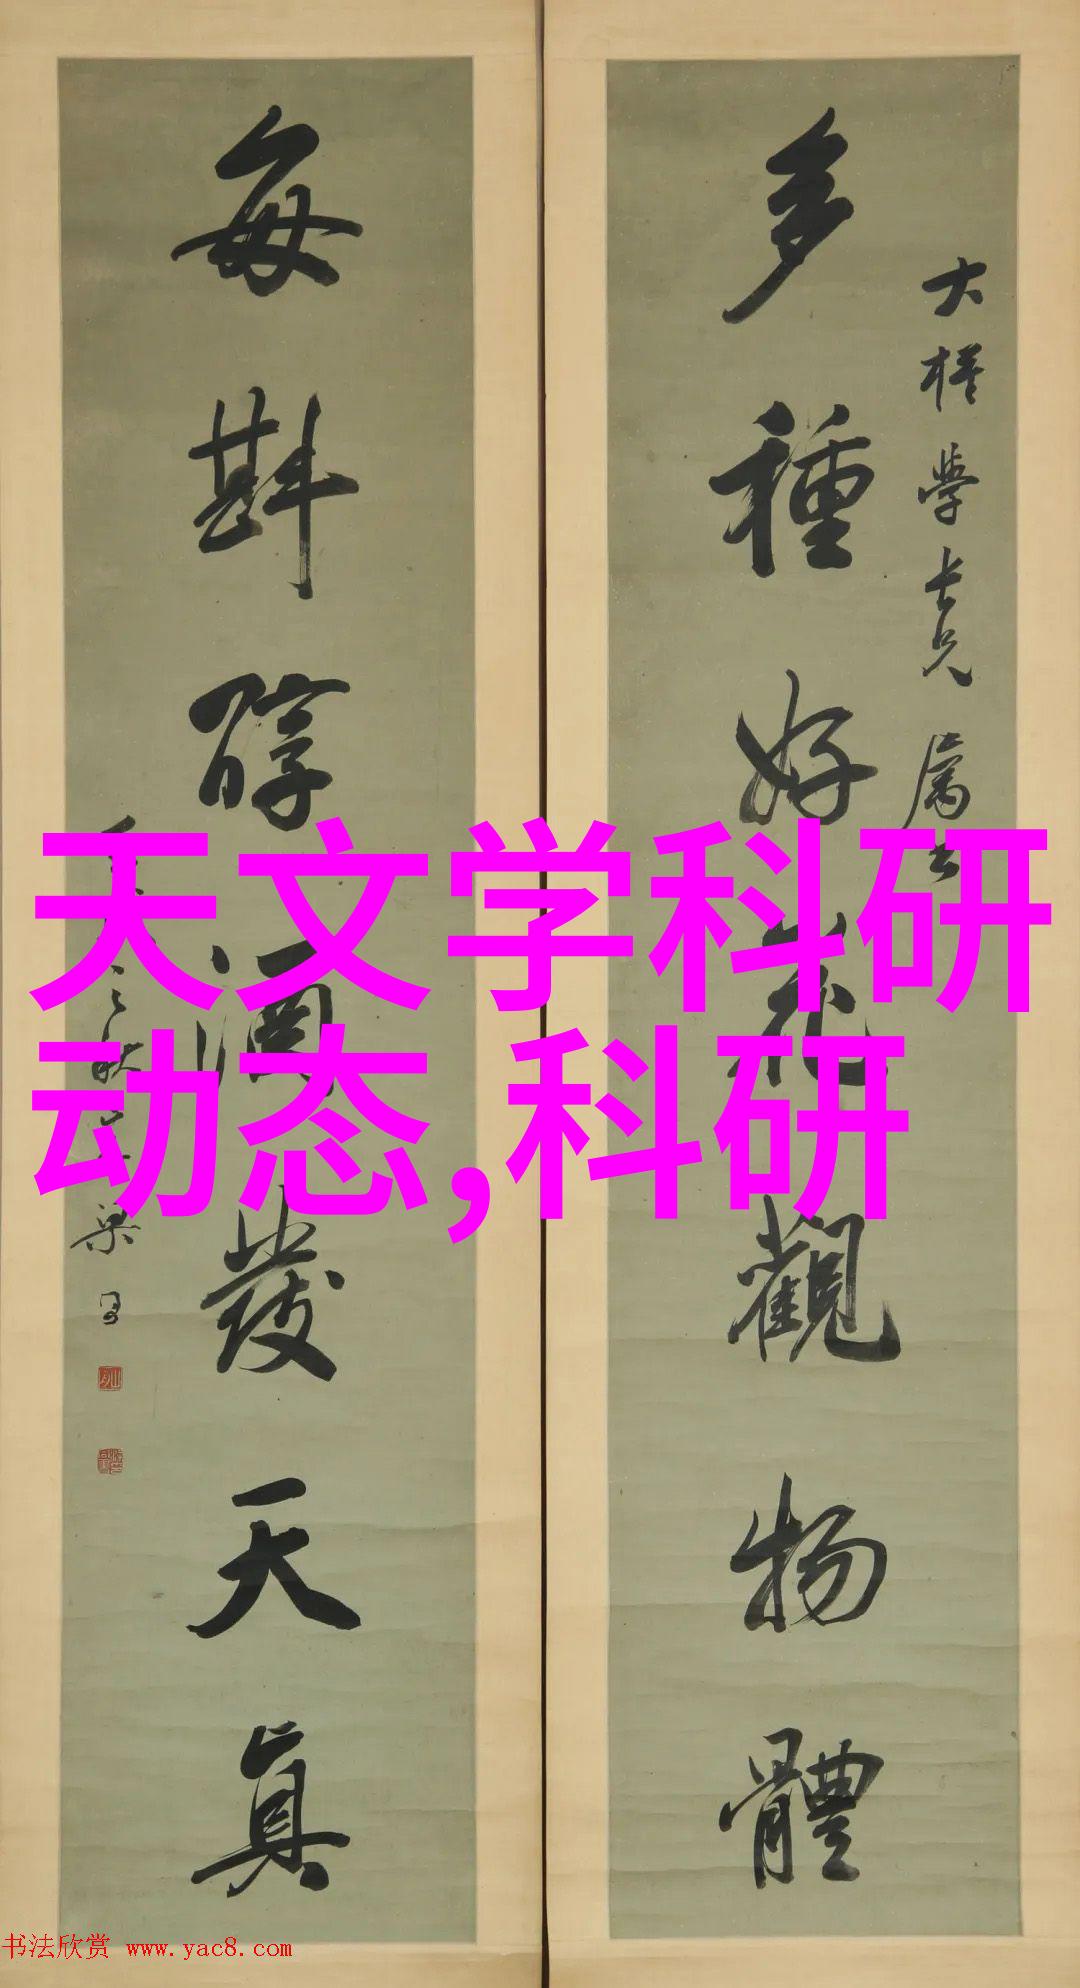 多種好花觀物體
大樣學長兄屬書
每斟醇酒發天真
之秋
梁
天文学科研
动态,科研
书法欣赏 www.yac8.com